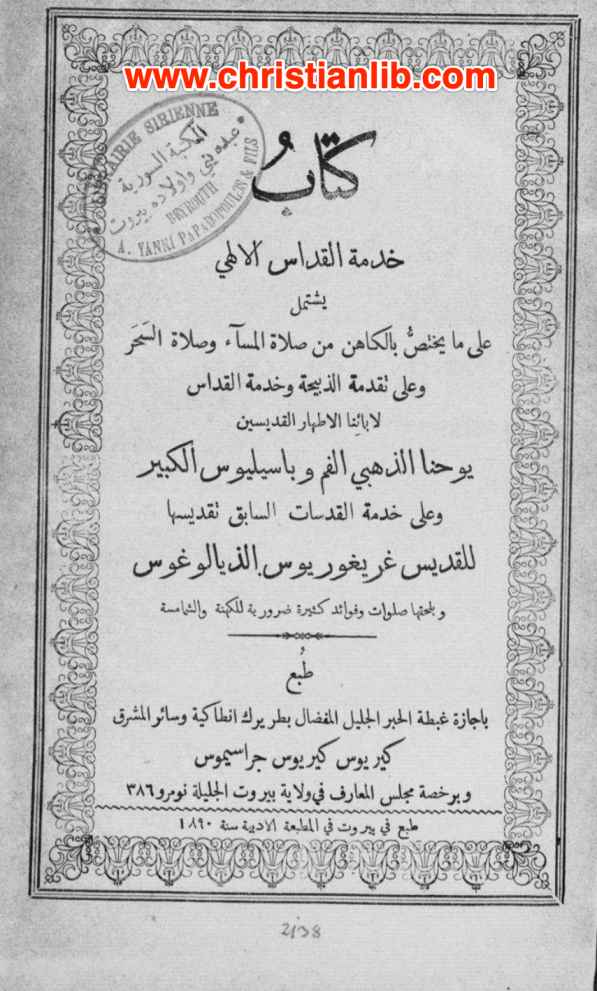 www.christianlib.com
LIBRAIRIE SIRIENNE
المكتبة السورية
عبده يني واولاده بيروت
BEYROUTH
A. YANNI PAPADOPOULOS & FILS
كتابُ
خدمة القداس الالهي
يشتمل
على ما يختصُّ بالكاهن من صلاة المسآء وصلاة السَحَر
وعلى تقدمة الذبيحة وخدمة القداس
لابائنا الاطهار القديسين
يوحنا الذهبي الفم وباسيليوس الكبير
وعلى خدمة القدسات السابق تقديسها
للقديس غريغوريوس الذيالوغوس
ويلحقها صلوات وفوائد كثيرة ضرورية للكهنة والشمامسة
طُبع
باجازة غبطة الحبر الجليل المفضال بطريرك انطاكية وسائر المشرق
كيريوس كيريوس جراسيموس
وبرخصة مجلس المعارف في ولاية بيروت الجليلة نومرو ٣٨٦
طبع في بيروت في المطبعة الادبية سنة ١٨٩٠
2138